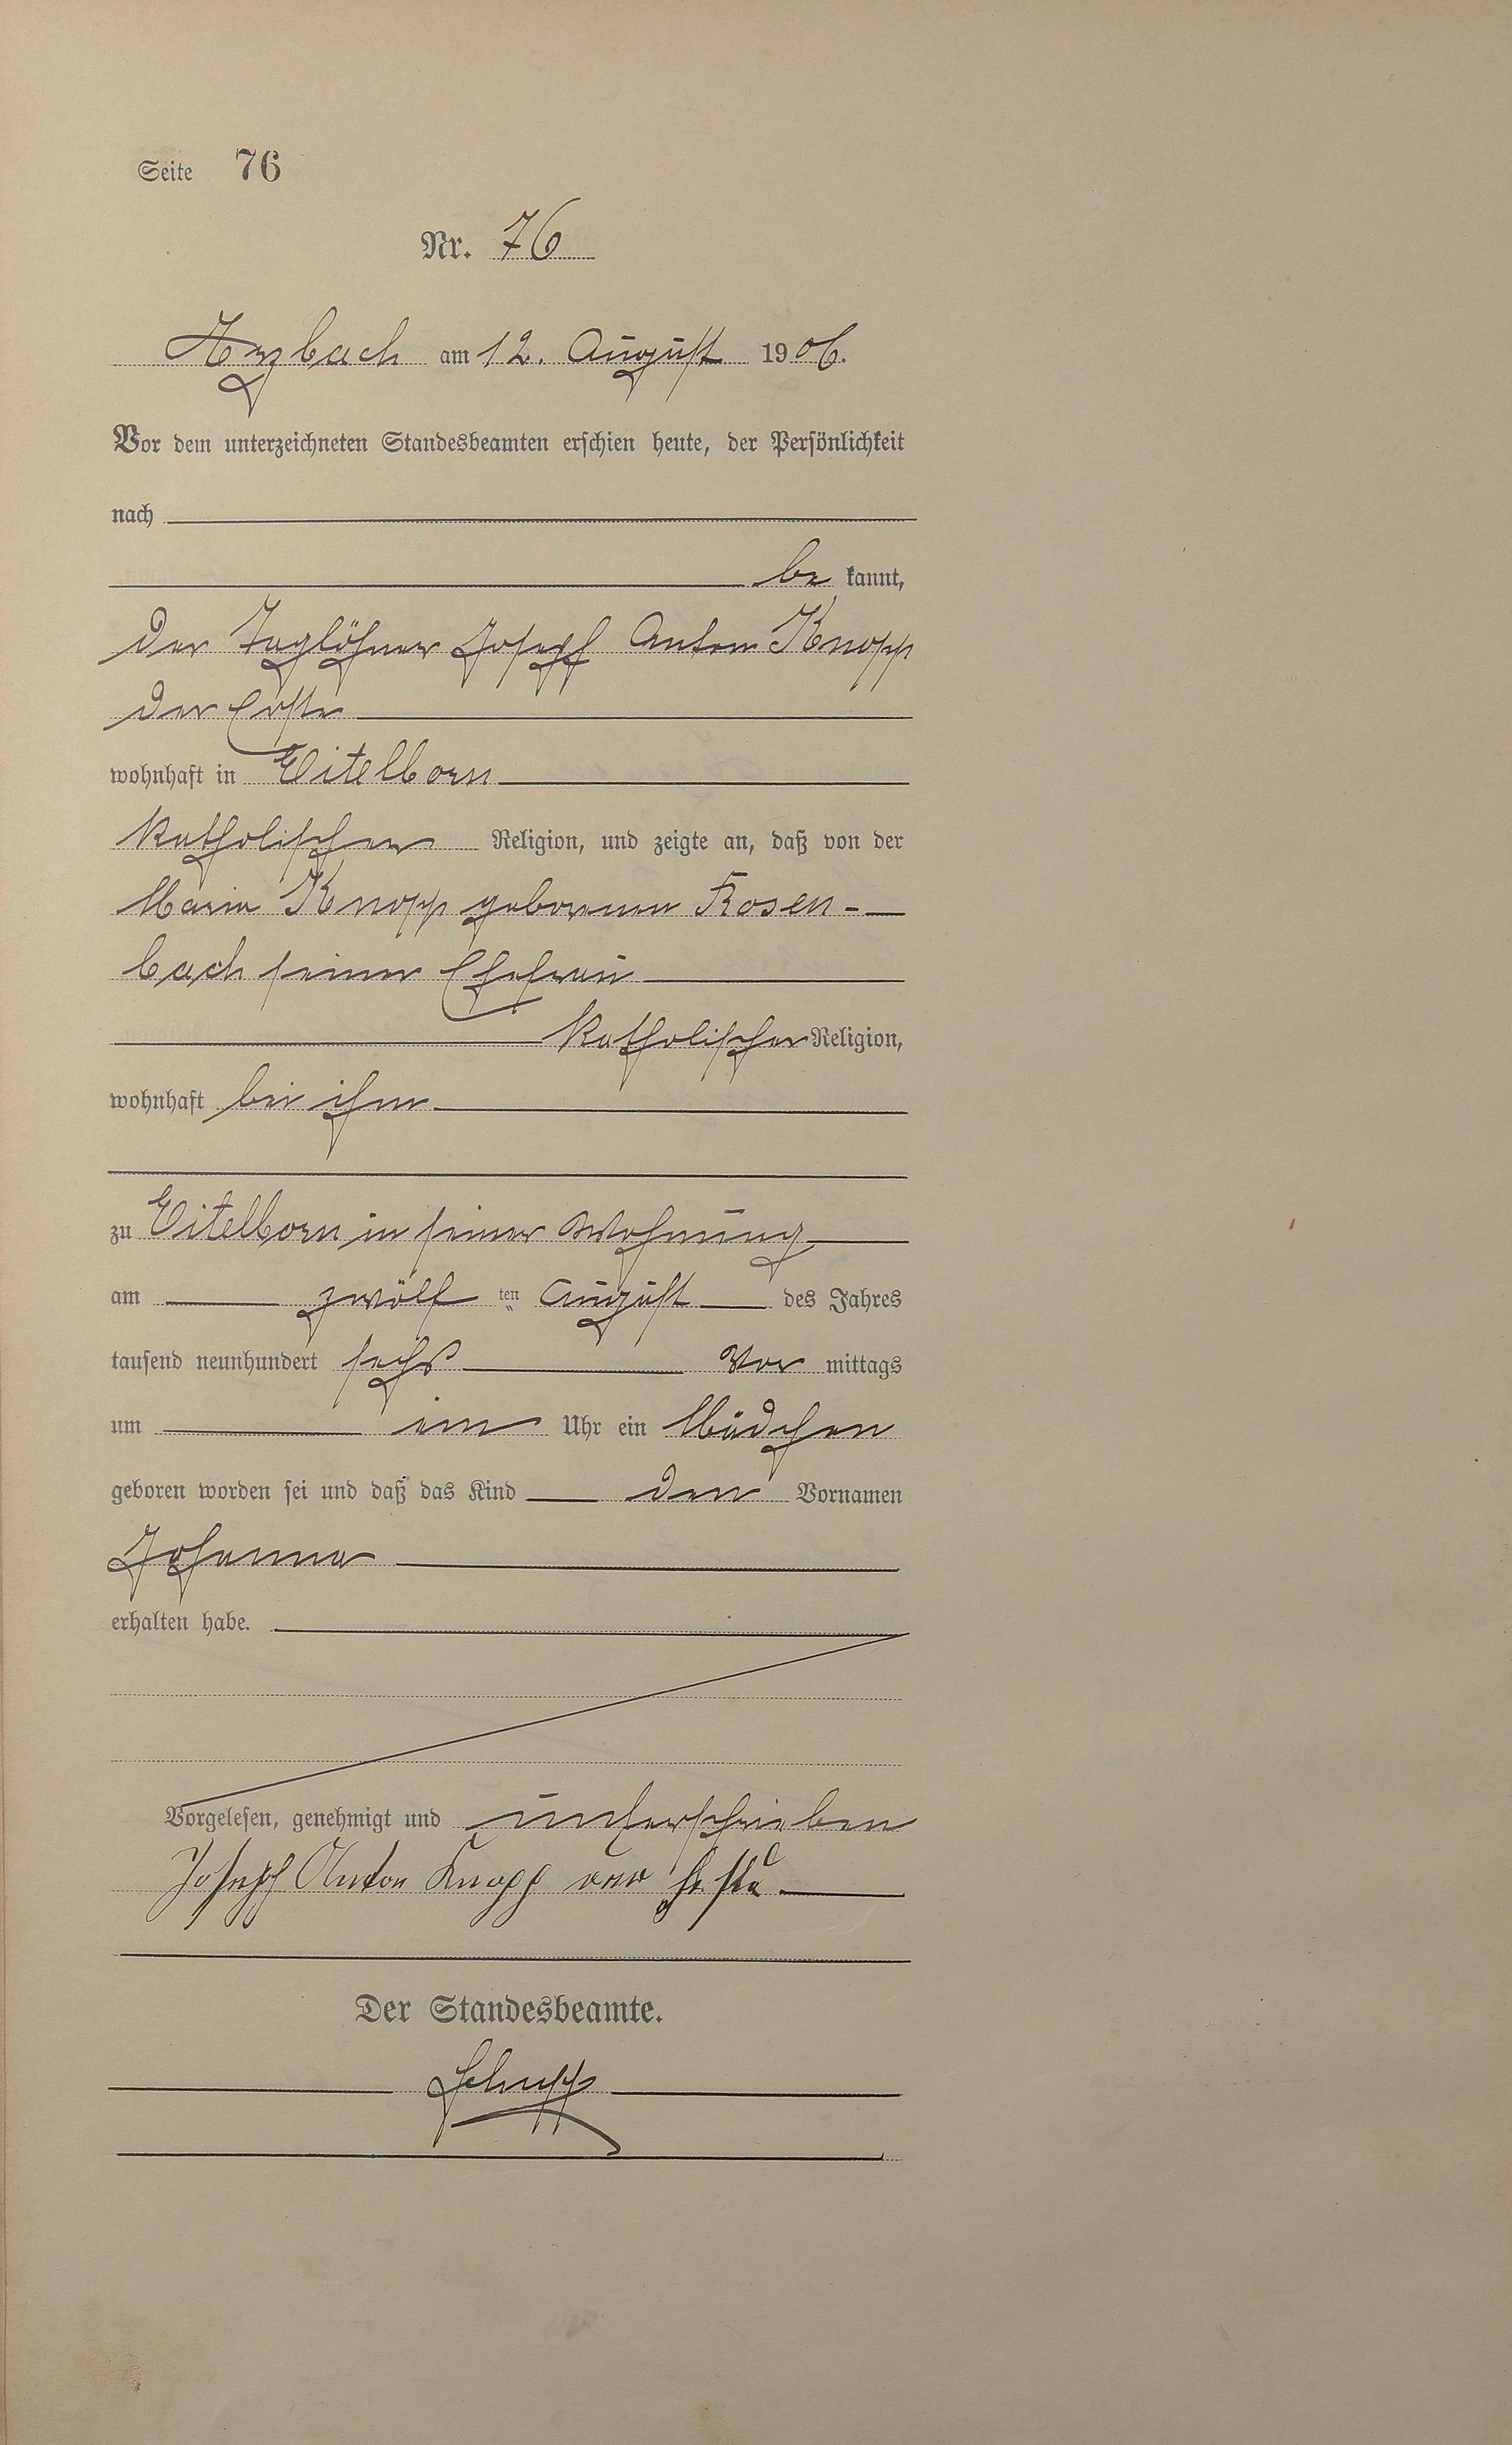 Seite 76
Nr. 76
Arzbach am 12. August 1906.
Vor dem unterzeichneten Standesbeamten erschien heute, der Persönlichkeit
nach
be kannt,
der Taglöhner Joseph Anton Knopp
der Erste
wohnhaft in Eitelborn
katholischer Religion, und zeigte an, daß von der
Maria Knopp geborenen Rosen-
bach seiner Ehefrau
katholischer Religion,
wohnhaft bei ihm
zu Eitelborn in seiner Wohnung
am zwölf ten August des Jahres
tausend neunhundert sechs Vor mittags
um ein Uhr ein Mädchen
geboren worden sei und daß das Kind den Vornamen
Johanna
erhalten habe.
Vorgelesen, genehmigt und unterschrieben
Joseph Anton Knopp der Erste
Der Standesbeamte.
Schupp